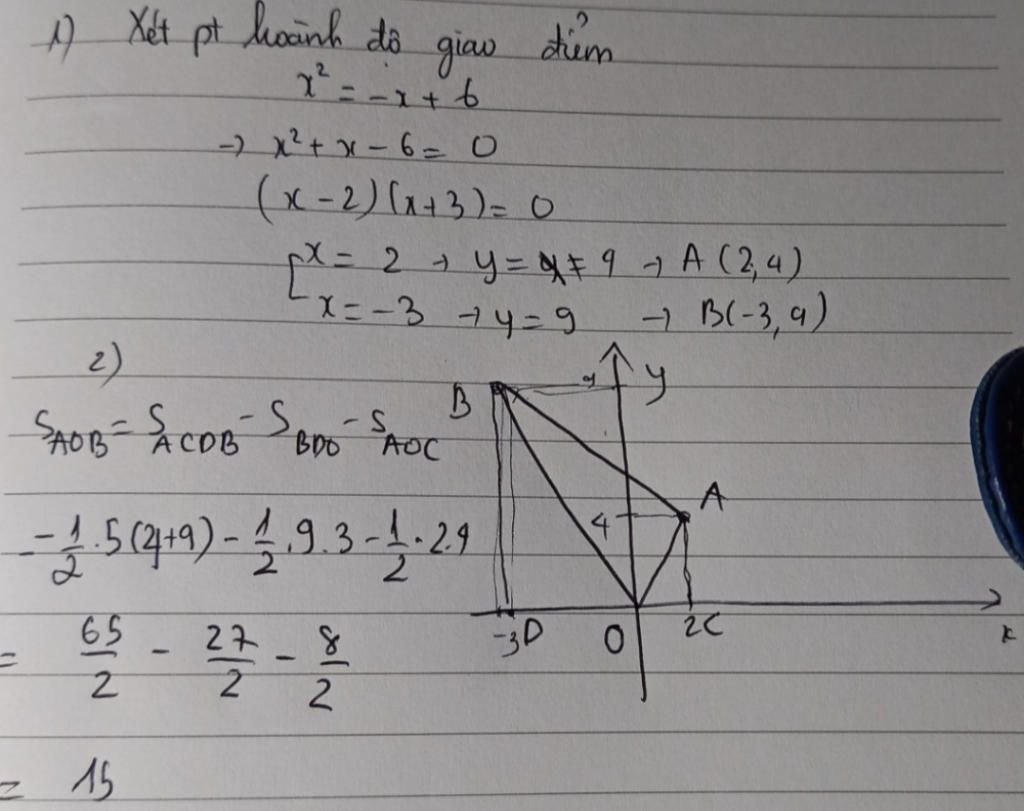 1) Xét pt hoành độ giao điểm
x² = -x + 6
→ x² + x - 6 = 0
(x - 2)(x+3) = 0
[x = 2 → y = 4 → A (2,4)
x = -3 → y = 9 → B(-3, 9)
2)
S_AOB = S_ACDB - S_BDO - S_AOC
= 1/2 . 5 (4+9) - 1/2 . 9 . 3 - 1/2 . 2.4
= 65/2 - 27/2 - 8/2
= 15
B 9 y
4 A
-3D O 2C x